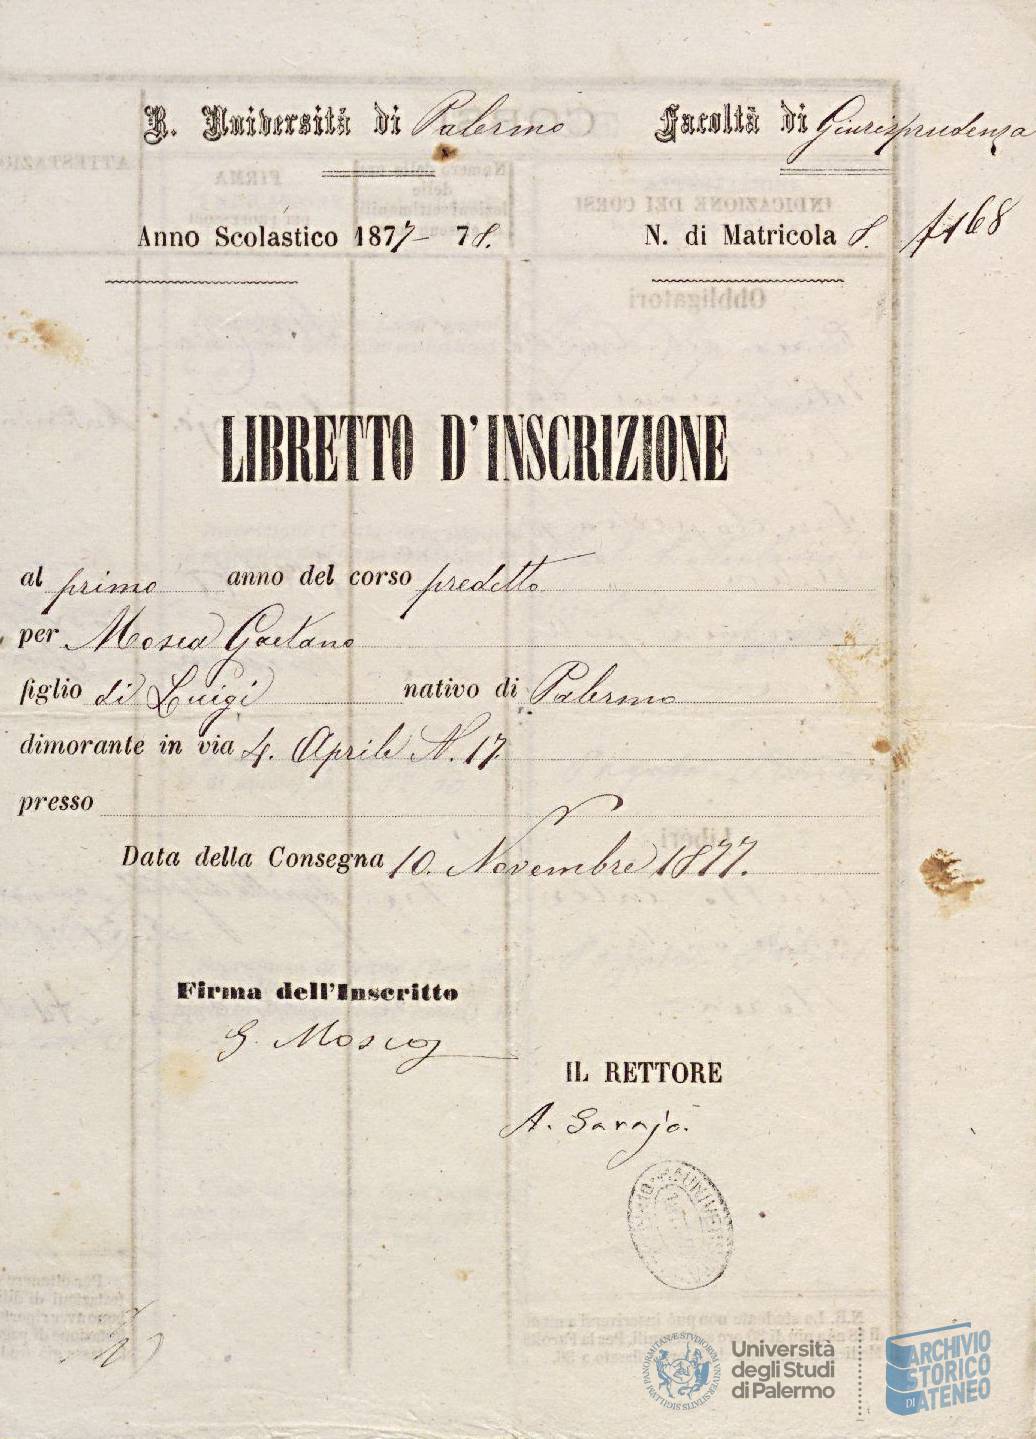 R. Università di Palermo
Facoltà di Giurisprudenza
Anno Scolastico 1877-78.
N. di Matricola 8. f 168
LIBRETTO D'INSCRIZIONE
al primo anno del corso predetto
per Mosca Gaetano
figlio di Luigi nativo di Palermo
dimorante in via 4. Aprile N. 17.
presso
Data della Consegna 10. Novembre 1877.
Firma dell'Inscritto
G. Mosca
IL RETTORE
A. Garajo.
Università
degli Studi
di Palermo
ARCHIVIO
STORICO
DI ATENEO